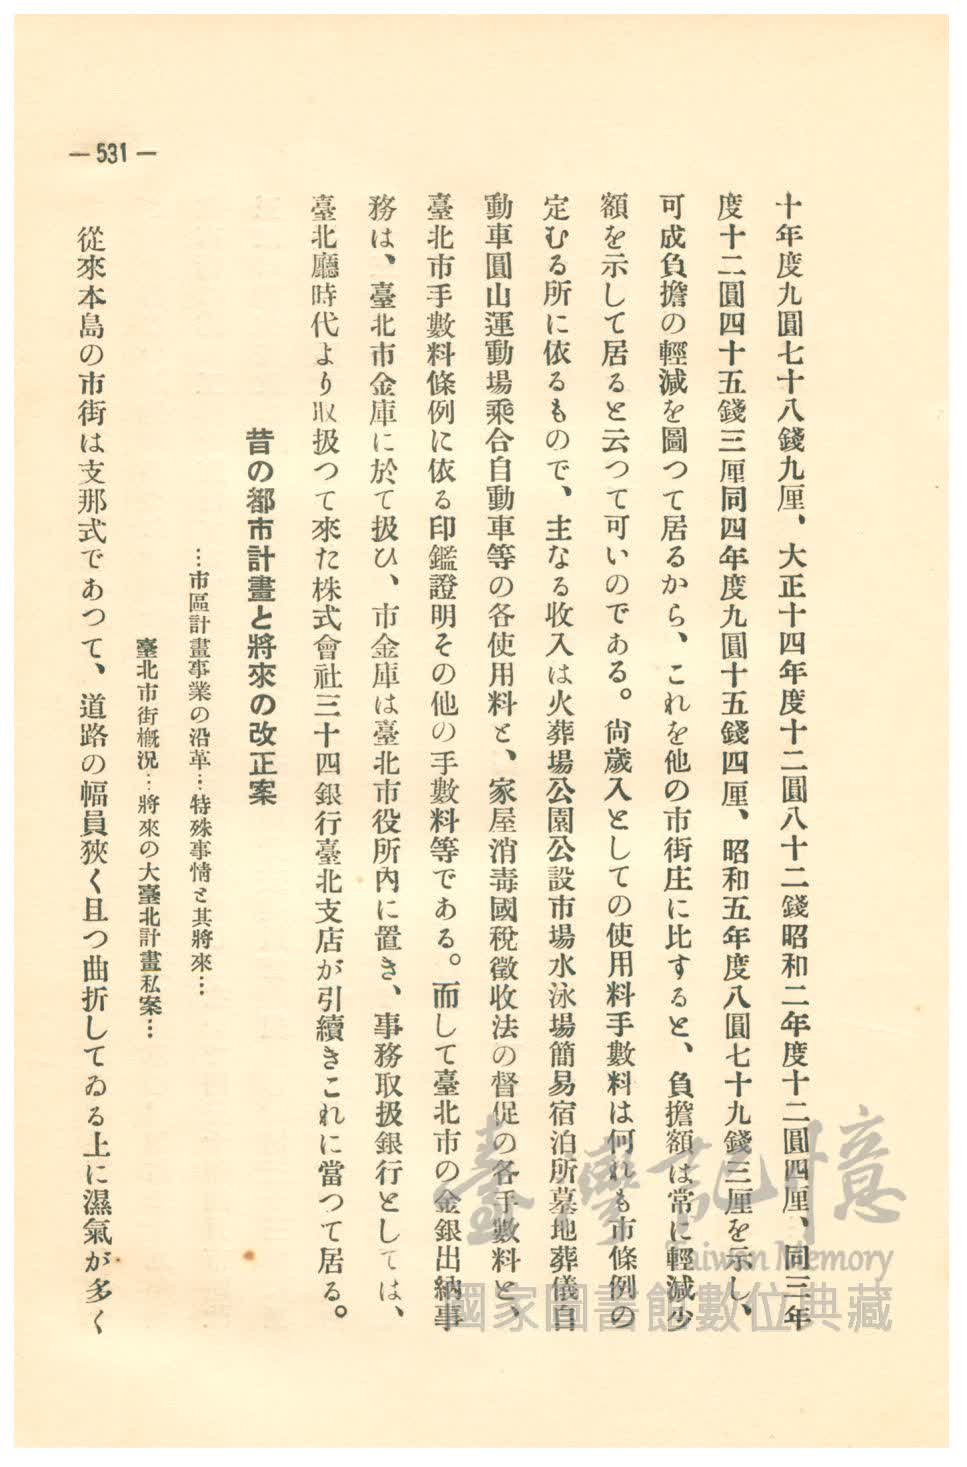 — 531 —
十年度九圓七十八錢九厘、大正十四年度十二圓八十二錢昭和二年度十二圓四厘、同三年
度十二圓四十五錢三厘同四年度九圓十五錢四厘、昭和五年度八圓七十九錢三厘を示し、
可成負擔の輕減を圖つて居るから、これを他の市街庄に比すると、負擔額は常に輕減少
額を示して居ると云つて可いのである。尙歲入としての使用料手數料は何れも市條例の
定むる所に依るもので、主なる收入は火葬場公園公設市場水泳場簡易宿泊所墓地葬儀自
動車圓山運動場乘合自動車等の各使用料と、家屋消毒國稅徵收法の督促の各手數料と、
臺北市手數料條例に依る印鑑證明その他の手數料等である。而して臺北市の金銀出納事
務は、臺北市金庫に於て扱ひ、市金庫は臺北市役所內に置き、事務取扱銀行としては、
臺北廳時代より取扱つて來た株式會社三十四銀行臺北支店が引續きこれに當つて居る。
昔の都市計畫と將來の改正案
…市區計畫事業の沿革…特殊事情と其將來…
臺北市街槪況…將來の大臺北計畫私案…
從來本島の市街は支那式であつて、道路の幅員狹く且つ曲折してゐる上に濕氣が多く
臺灣記憶
Taiwan Memory
國家圖書館數位典藏